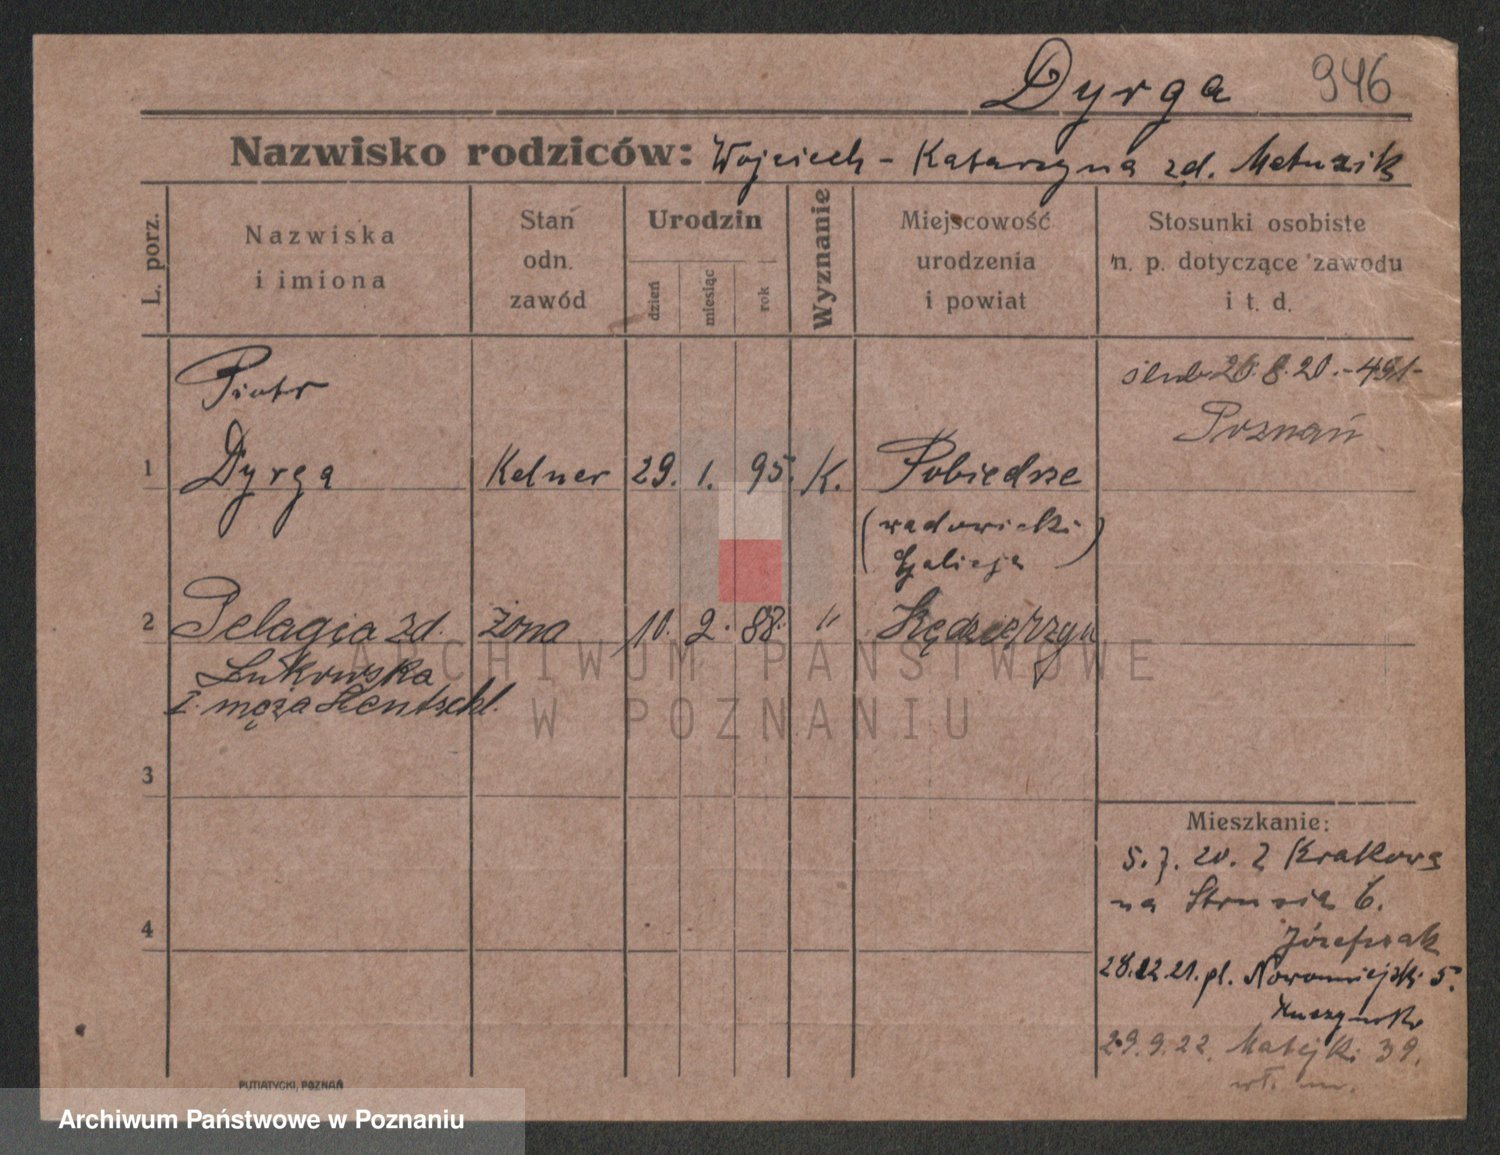 Dyrga 946
Nazwisko rodziców: Wojciech - Katarzyna zd. Matusik
L. porz.
Nazwiska
i imiona
Stan
odn.
zawód
Urodzin
dzień
miesiąc
rok
Wyznanie
Miejscowość
urodzenia
i powiat
Stosunki osobiste
n. p. dotyczące zawodu
i t. d.
Piotr
ślub 26.8.20.-491-
Poznań
1 Dyrga Kelner 29. 1. 95. K. Pobiedrze
(wadowicki
Galicja)
2 Pelagia zd. żona 10. 2. 88. "
Łukowska
I. męża Hentschl.
3
4
Mieszkanie:
5.7.20. Z Krakowa
na Strusia 6.
Józefczak
28.12.21. pl. Nowomiejski 5.
29.9.22. Matejki 39.
wł. m.
PUTIATYCKI, POZNAŃ
ARCHIWUM PAŃSTWOWE
W POZNANIU
Archiwum Państwowe w Poznaniu